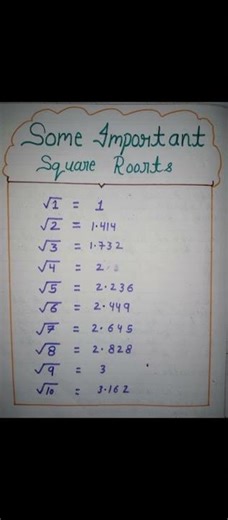 Some Important
Square Roorts
√1 = 1
√2 = 1.414
√3 = 1.732
√4 = 2
√5 = 2.236
√6 = 2.449
√7 = 2.645
√8 = 2.828
√9 = 3
√10 = 3.162